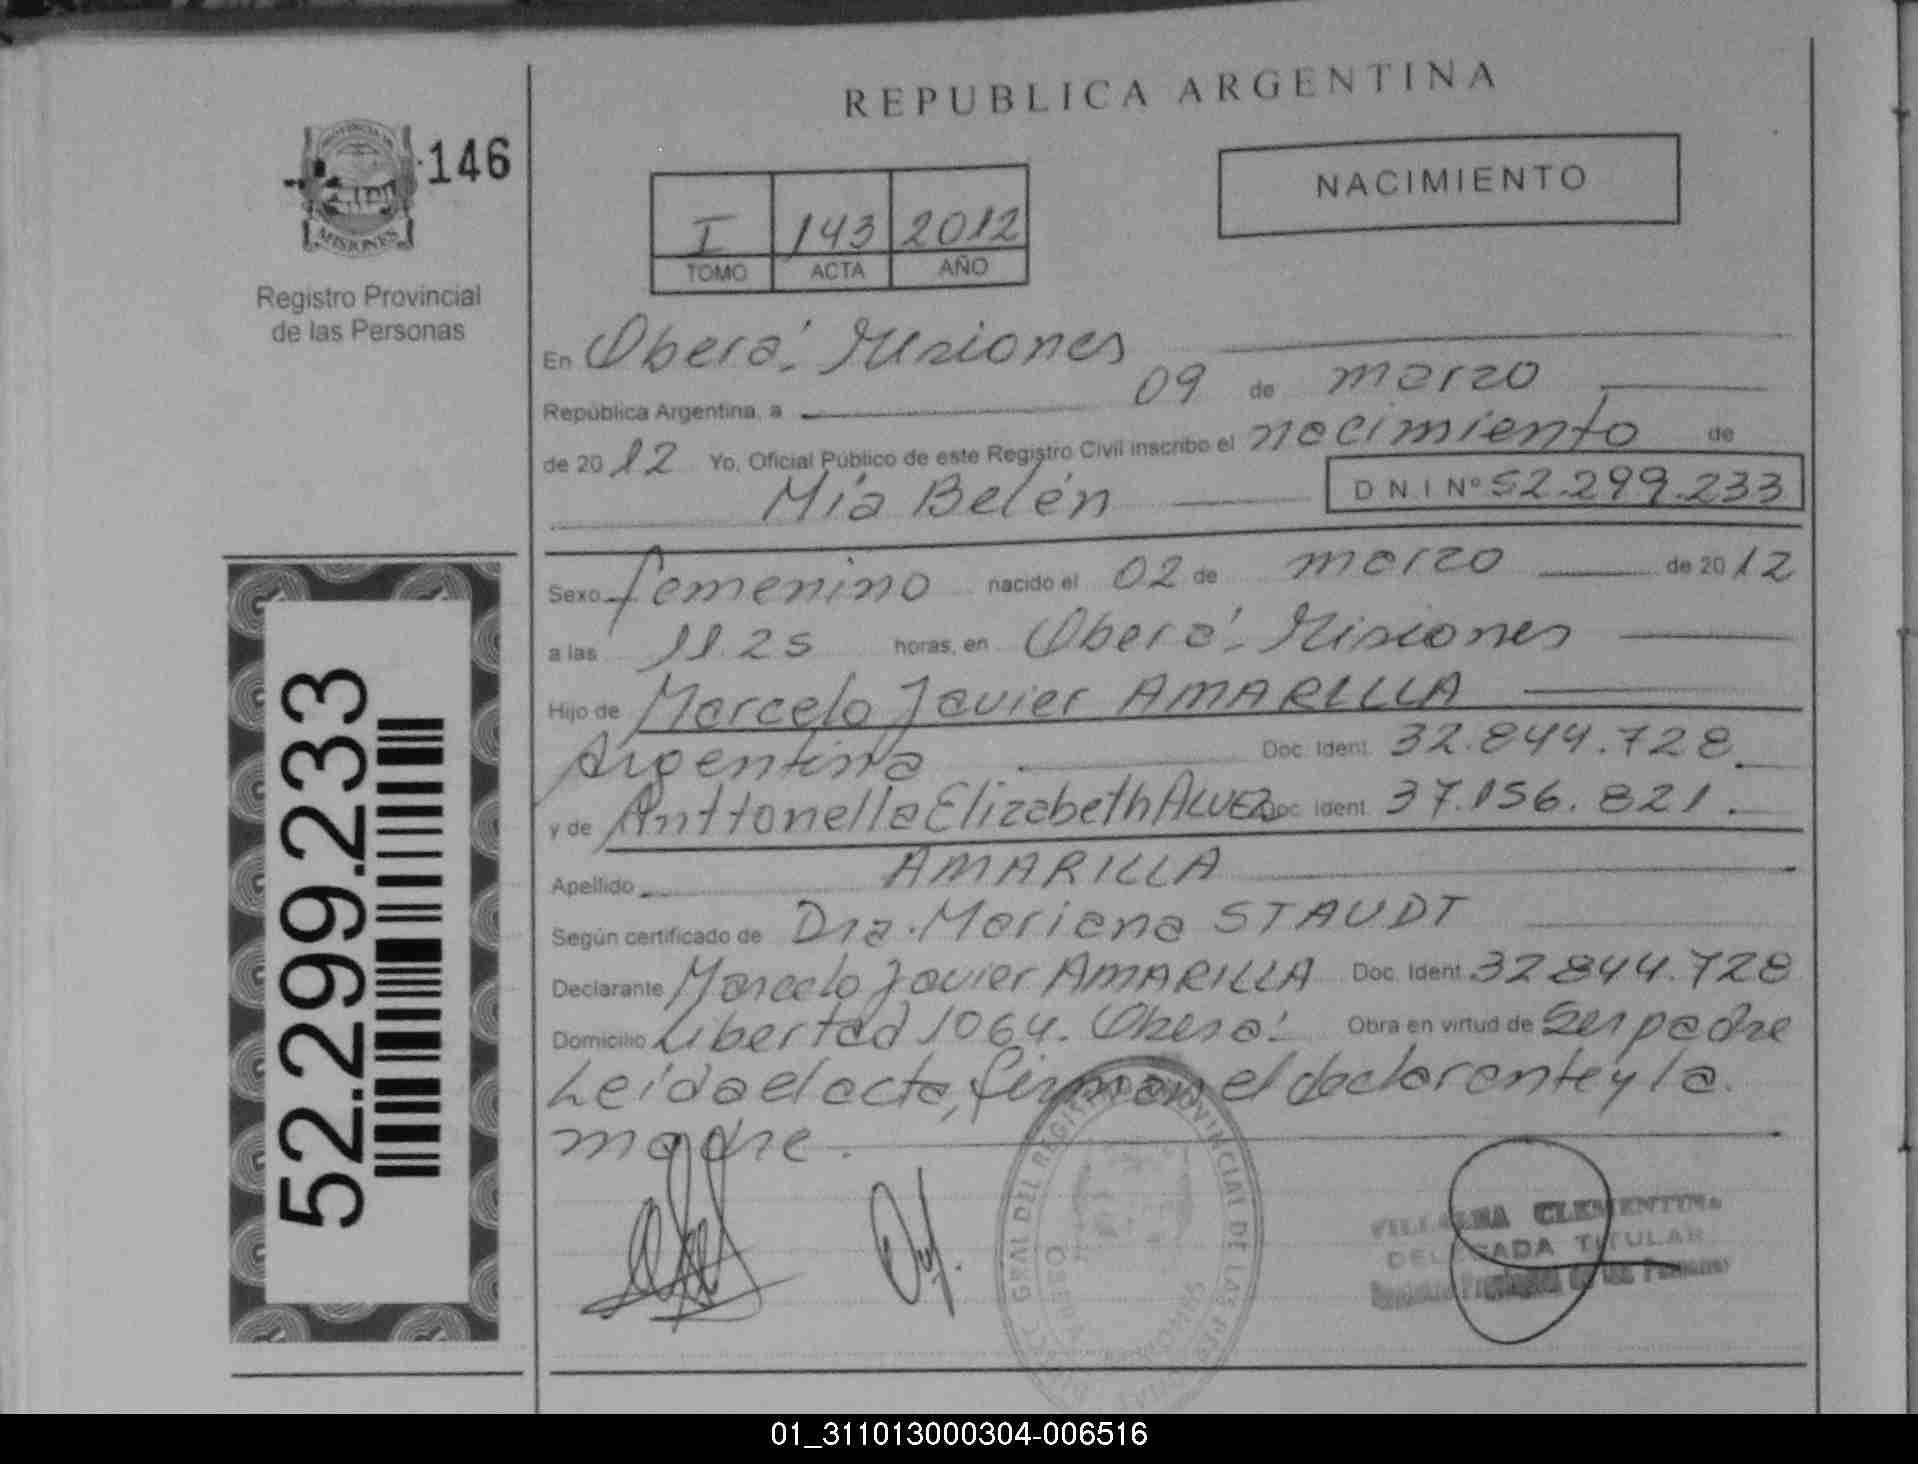 REPUBLICA ARGENTINA
PROVINCIA DE
MISIONES
146
Registro Provincial
de las Personas
NACIMIENTO
I 143 2012
TOMO ACTA AÑO
En Oberá. Misiones
República Argentina, a 09 de marzo
de 2012 Yo, Oficial Público de este Registro Civil inscribo el nacimiento de
Mía Belén D N I Nº 52.299.233
Sexo femenino nacido el 02 de marzo de 2012
a las 11.25 horas, en Oberá. Misiones
Hijo de Marcelo Javier AMARILLA
Argentina Doc. Ident. 32.844.728.
y de Anttonella Elizabeth ALVEZ Doc. Ident. 37.156.821.
Apellido AMARILLA
Según certificado de Dra. Mariana STAUDT
Declarante Marcelo Javier AMARILLA Doc. Ident. 32844.728
Domicilio Libertad 1064. Oberá. Obra en virtud de Ser padre
Leída el acta, firman el declarante y la
madre.
52.299.233
GRAL DEL REGISTRO PROVINCIAL DE LAS
VILLALBA CLEMENTINA
DELEGADA TITULAR
Registro Provincial de las Personas
01_311013000304-006516